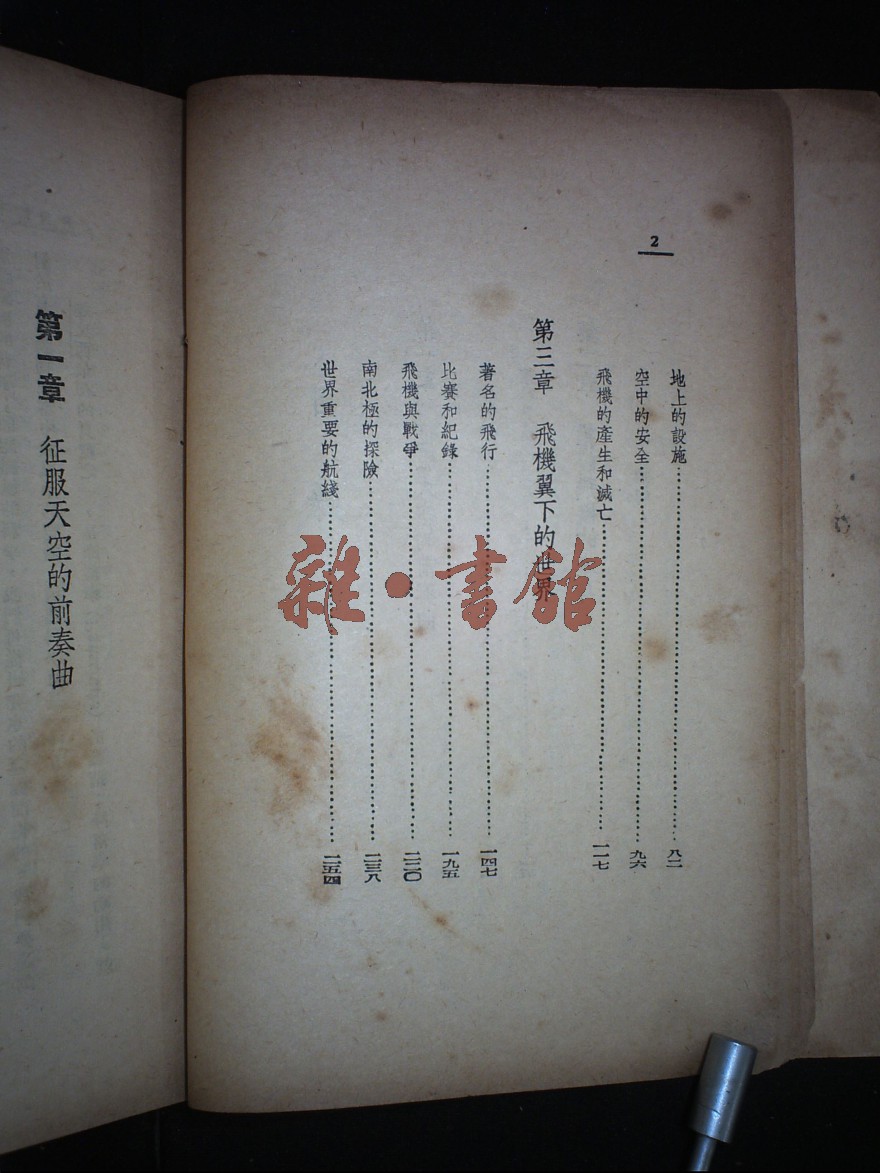 2
地上的設施……八一
空中的安全……九六
飛機的產生和滅亡……一一七
第三章　飛機翼下的世界
著名的飛行……一四七
比賽和紀錄……一九五
飛機與戰爭……二二〇
南北極的探險……二三八
世界重要的航綫……二五四
雜·書館
第一章　征服天空的前奏曲